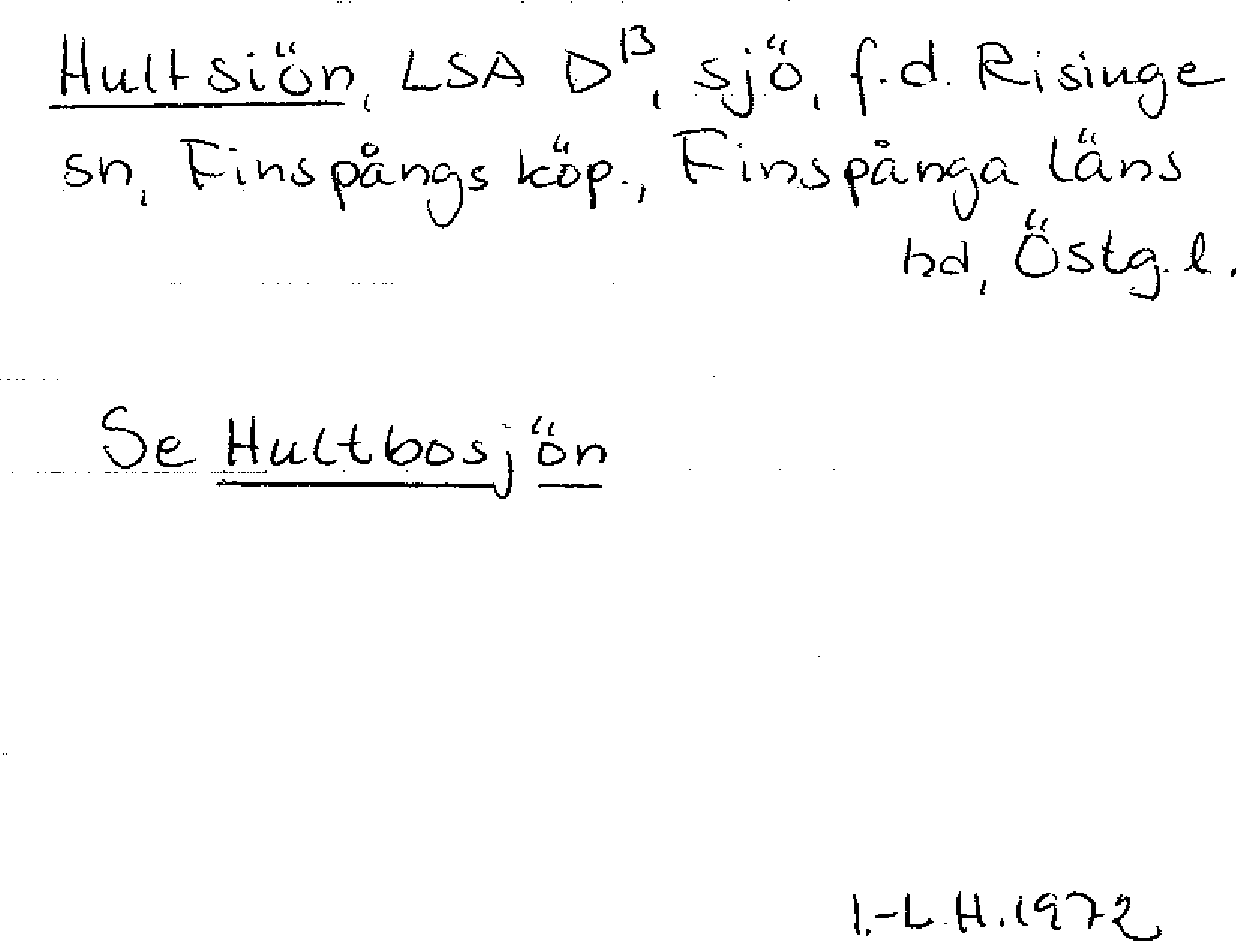 Hultsiön, LSA D¹³, sjö, f.d. Risinge
sn, Finspångs köp., Finspånga läns
hd, Östg.l.
Se Hultbosjön
I.-L.H.1972